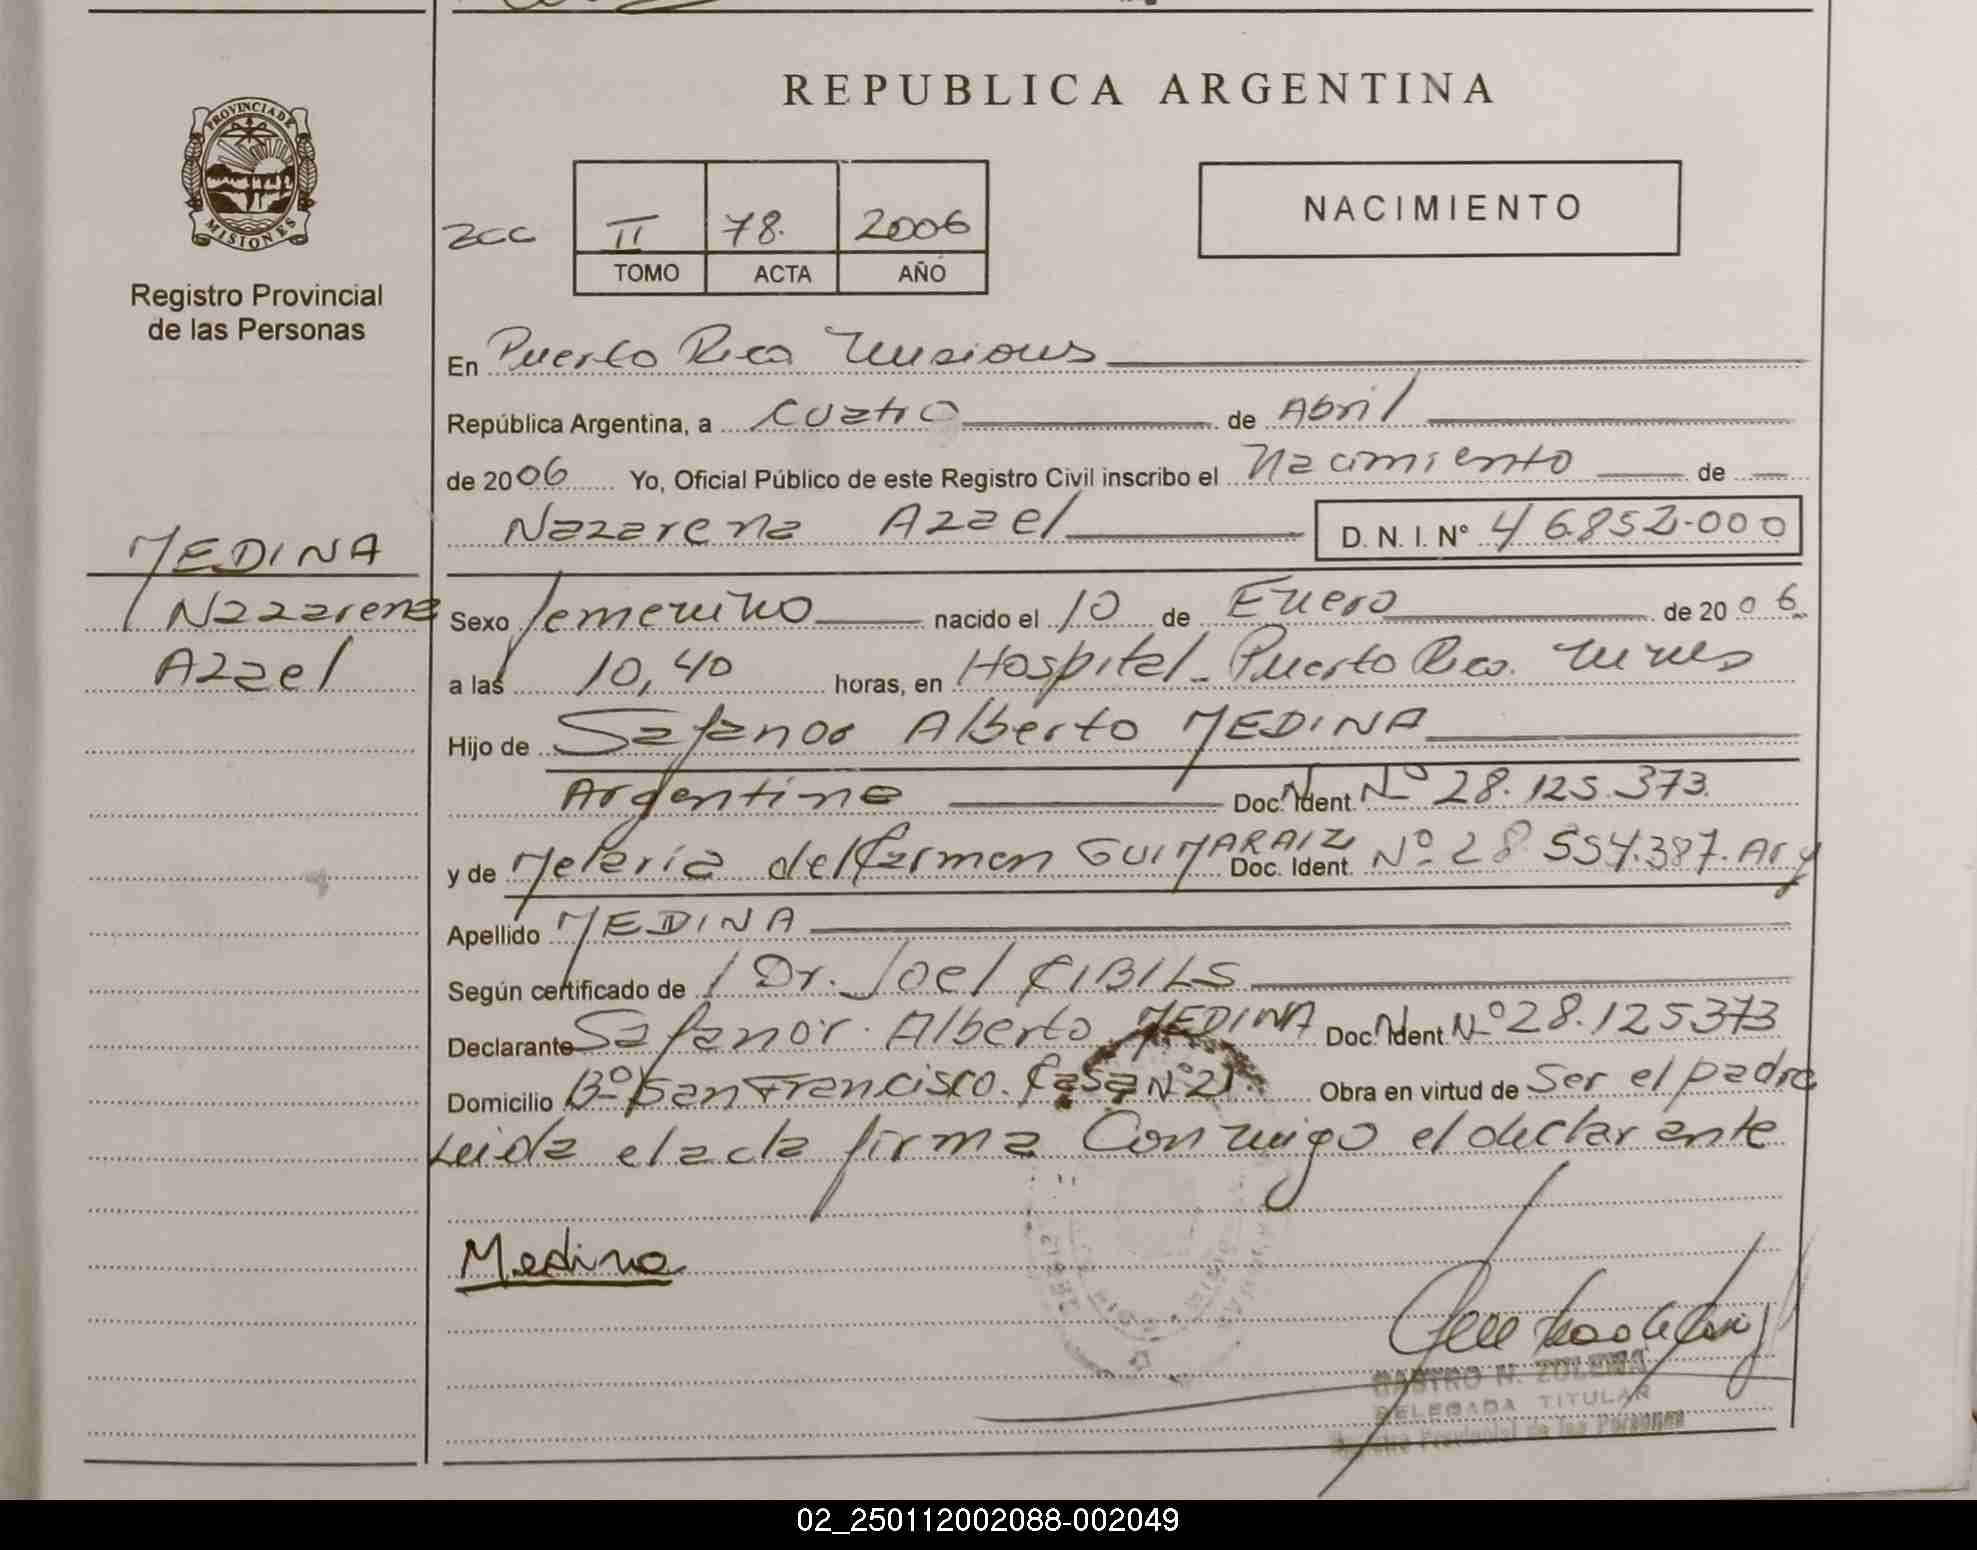 REPUBLICA ARGENTINA
PROVINCIA DE
MISIONES
Registro Provincial
de las Personas
NACIMIENTO
II 78. 2006
TOMO ACTA AÑO
En Puerto Rico Misiones
República Argentina, a cuatro de Abril
de 2006 Yo, Oficial Público de este Registro Civil inscribo el Nacimiento de
Nazarena Azael D. N. I. Nº 46852.000
MEDINA
Nazarena
Azael
Sexo femenino nacido el 10 de Enero de 2006.
a las 10,40 horas, en Hospital - Puerto Rico. Mnes
Hijo de Safanor Alberto MEDINA
Argentino Doc. Ident. Nº 28.125.373.
y de Meleria del Carmen GUIMARAIZ Doc. Ident. Nº 28 554.387. Arg
Apellido MEDINA
Según certificado de Dr. Joel CIBILS
Declarante Safanor Alberto MEDINA Doc. Ident. Nº 28.125373
Domicilio Bº San Francisco. Casa Nº 21. Obra en virtud de Ser el padre
Leida el acta firma Conmigo el declarante
Medina
CASTRO N. ZULEMA
DELEGADA TITULAR
Registro Provincial de las Personas
02_250112002088-002049